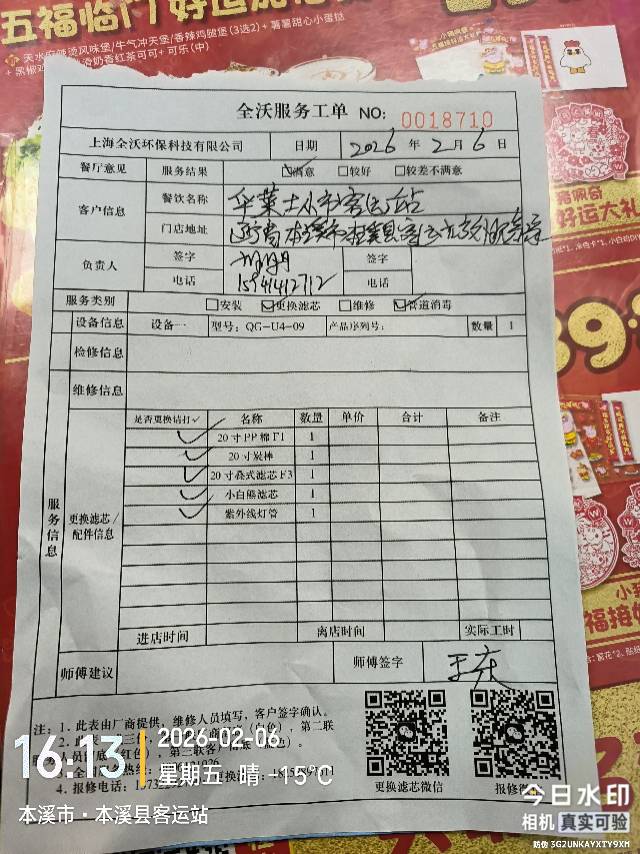 五福临门 好运加
天水麻辣烫风味堡/牛气冲天堡/香辣鸡腿堡(3选2)+ 薯薯甜心小蛋挞
可乐(中)
全沃服务工单 NO: 0018710
上海全沃环保科技有限公司 日期 2026 年 2 月 6 日
餐厅意见 服务结果 ☑满意 □较好 □较差不满意
客户信息 餐饮名称 华莱士小市客运站
门店地址
负责人 签字 签字
电话 15941412712 电话
服务类别 □安装 ☑更换滤芯 □维修 ☑管道消毒
设备信息 设备一 型号: QG-U4-09 产品序列号: 数量 1
检修信息
维修信息
服务信息
更换滤芯/配件信息
是否更换请打✓ 名称 数量 单价 合计 备注
✓ 20寸PP棉F1 1
✓ 20寸炭棒 1
✓ 20寸叠式滤芯F3 1
✓ 小白熊滤芯 1
✓ 紫外线灯管 1
进店时间 离店时间 实际工时
师傅建议 师傅签字 王庆
注: 1. 此表由厂商提供, 维修人员填写, 客户签字确认。
4. 报修电话:
更换滤芯微信 报修微
16:13 2026-02-06
星期五 晴 -15℃
本溪市·本溪县客运站
今日水印
相机 真实可验
防伪 3G2UNKAYXTY9XM